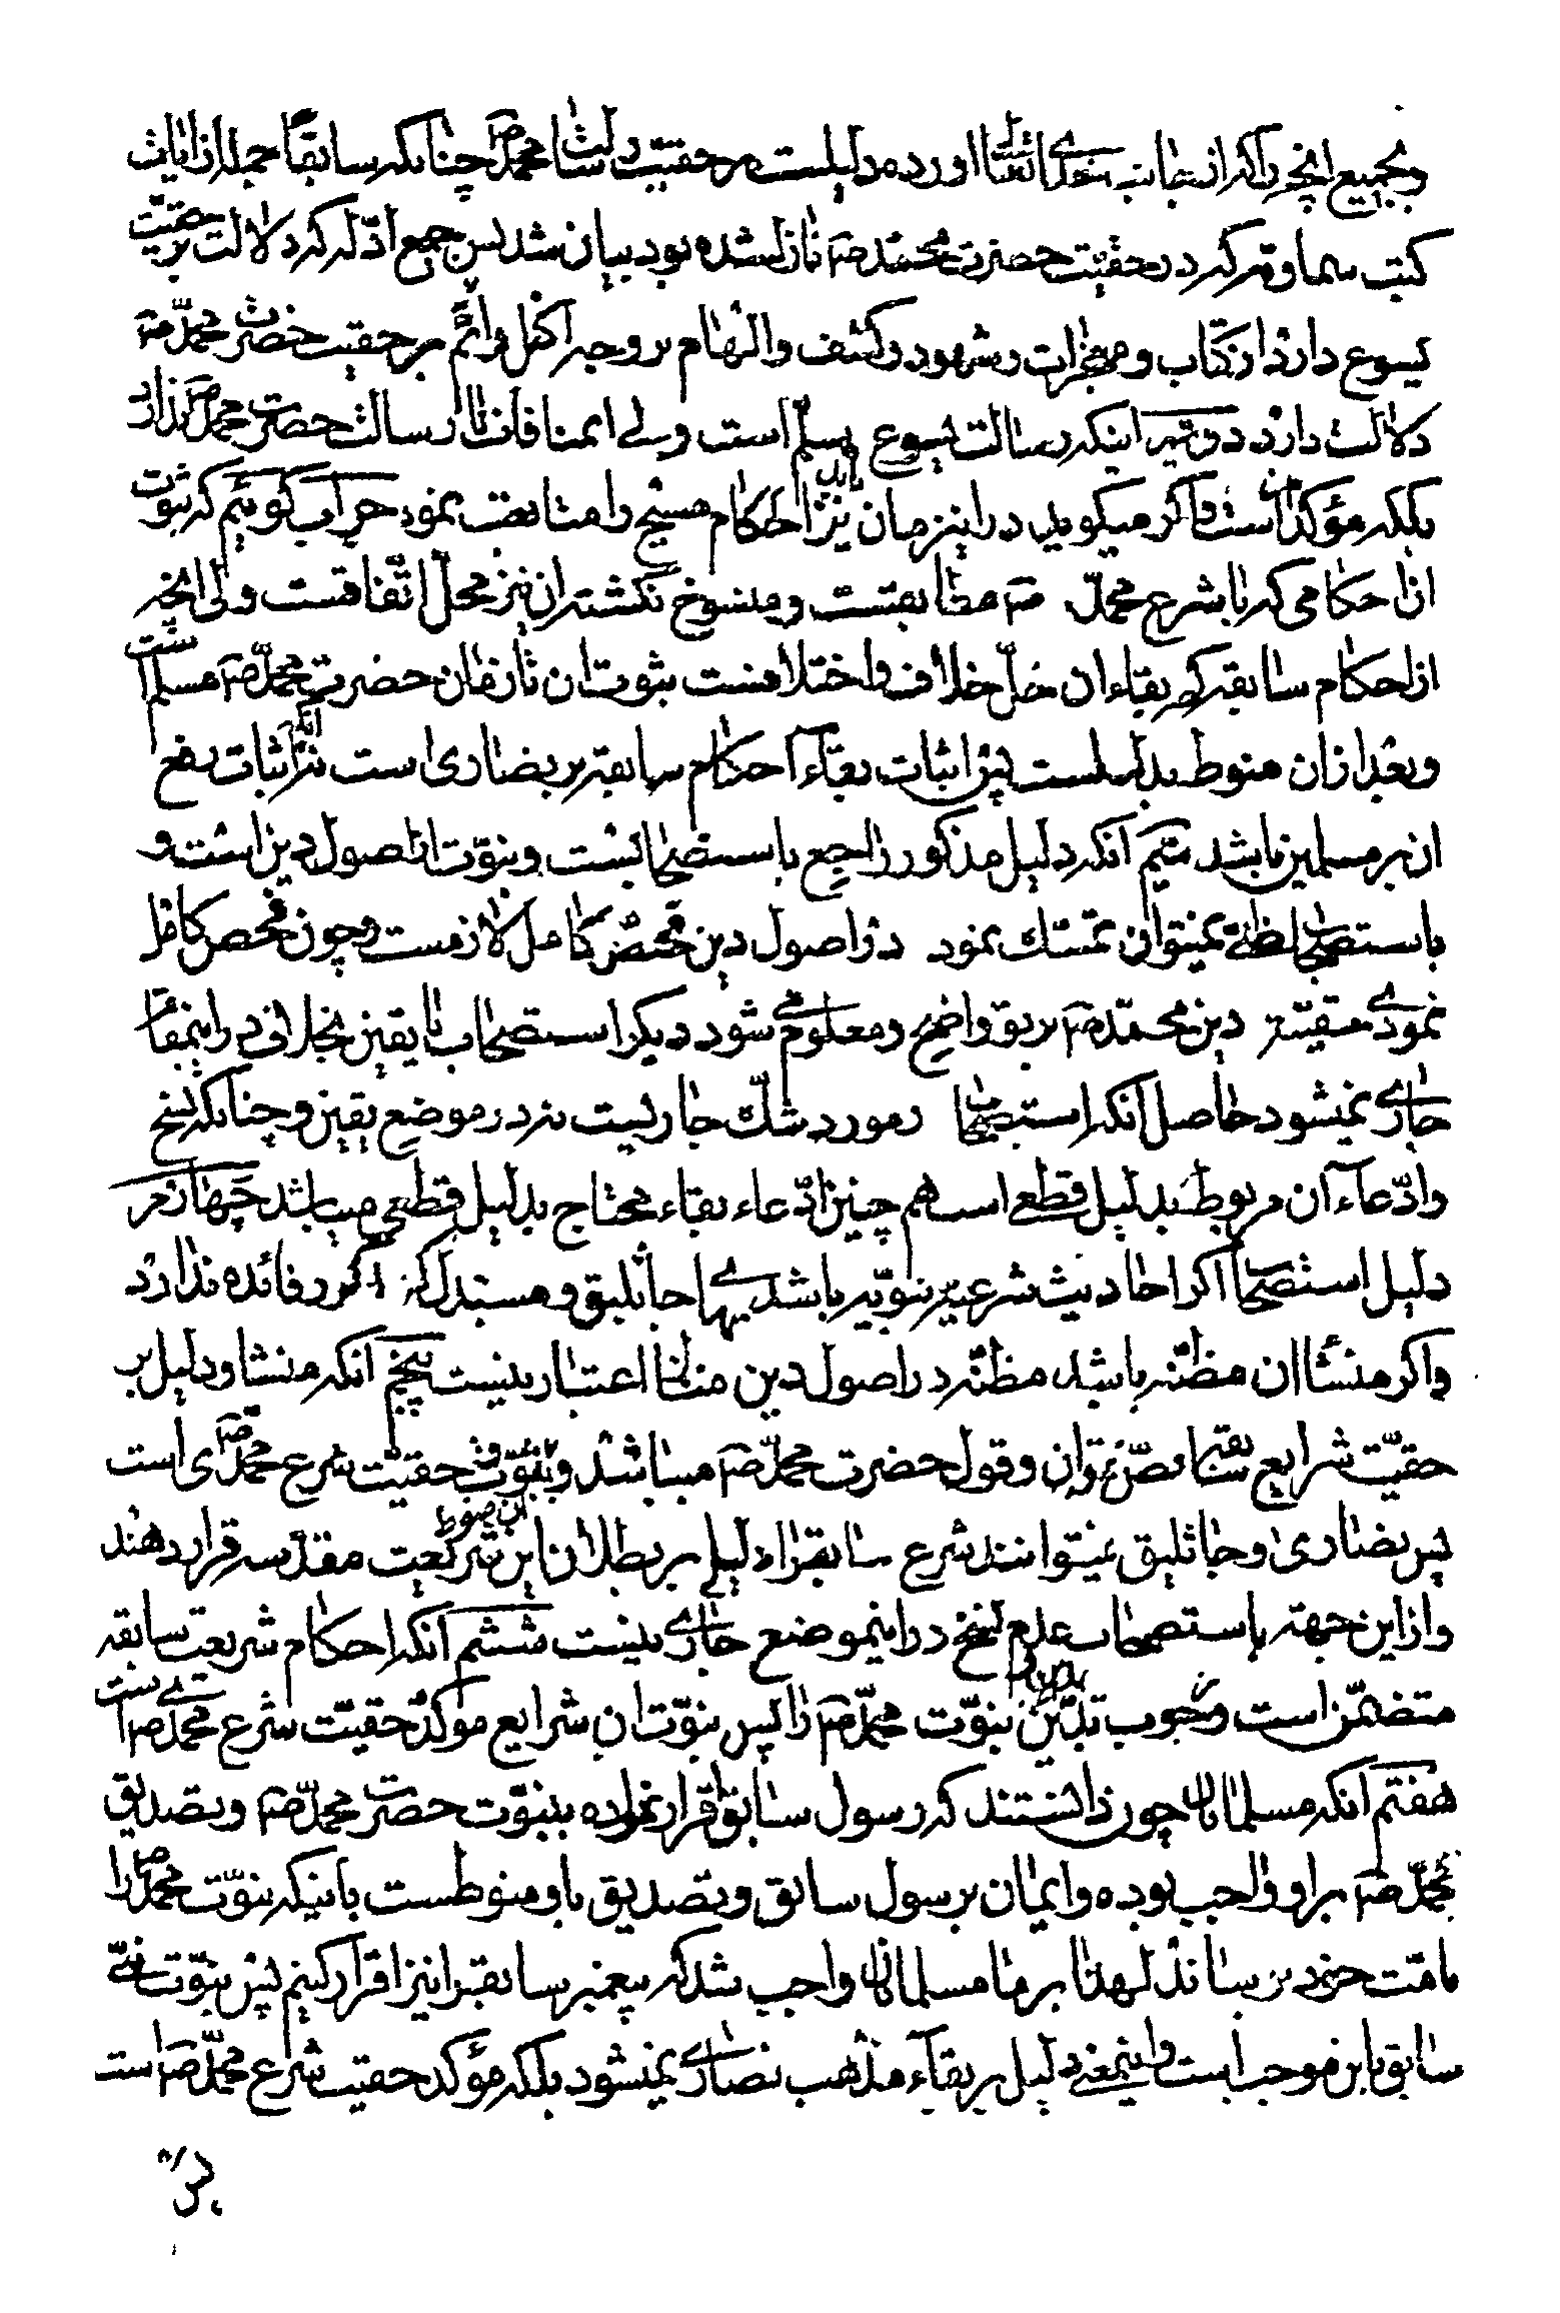 و بجمیع انچه را که از جانب خدای تعالی اورده دلیلست بر حقیّت رسالت محمد ص چنانکه سابقاً جمله از ایات
کتب سماویه که در حقیّت حضرت محمد ص نازل شده بود بیان شد پس جمیع ادّله که دلالت بر حقیّت
یسوع دارد از کتاب و معجزات و شهود و کشف و الهام بر وجه اکمل و اتمّ بر حقیت حضرت محمّد ص
دلالت دارد دویّم اینکه رسالت یسوع مسلّم است ولی این منافات با رسالت حضرت محمد ص ندارد
بلکه مؤکد انست و اگر میگویند در اینزمان نیز باید احکام مسیح را متابعت نمود جواب گوئیم که ثبوت
از احکامی که با شرع محمّد ص مطابقست و منسوخ نگشته ان نیز محل اتّفاقست ولی انچه
از احکام سابقه که بقاء ان محلّ خلاف و اختلافست ثبوت ان تا زمان حضرت محمّد ص مسلم است
و بعد از ان منوط بدلیلست پس اثبات بقآء احکام سابقه بر نصاری است نه انکه اثبات رفع
ان بر مسلمین باشد سیّم آنکه دلیل مذکور راجع باستصحابست و نبوّت از اصول دین است و
باستصحاب ظنّی نمیتوان تمسّک نمود در اصول دین فحص کامل لازمست و چون فحص کامل
نمودی حقیّت دین محمّد ص بر تو واضح و معلوم می شود دیگر استصحاب با یقین بخلاف در اینمقام
جاری نمیشود حاصل آنکه استصحاب در مورد شکّ جاریست نه در موضع یقین و چنانکه نسخ
و ادّعآء آن مربوط بدلیل قطعی است هم چنین ادّعاء بقاء محتاج بدلیل قطعی میباشد چهارم
دلیل استصحاب اگر احادیث شرعیه نبویّه باشد یهرا جاثلیق و مستدل مذکور فائده ندارد
و اگر منشأ ان مظنّه باشد مظنّه در اصول دین مناط اعتبار نیست پنجم آنکه منشا و دلیل بر
حقیّت شرایع سابقه نصّ قران و قول حضرت محمّد ص میباشد و ثبوت حقیّت شرع محمّدی است
پس نصاری و جاثلیق نمیتوانند شرع سابق را دلیلی بر بطلان این شریعت مقدّسه قرار دهند
و از این جهة باستصحاب عدم نسخ در اینموضع جاری نیست ششم آنکه احکام شریعت سابقه
متضمّن است وجوب تدیّن نبوّت محمّد ص را پس نبوّت ان شرایع موکد حقیّت شرع محمّد ص است
هفتم آنکه مسلمانان چون دانستند که رسول سابق اقرار نموده بنبوّت حضرت محمّد ص و تصدیق
محمّد ص بر او واجب بوده و ایمان برسول سابق و تصدیق باو منوطست باینکه نبوّت محمّد ص را
بامّت خود برساند لهذا بر ما مسلمانان واجب شد که پیغمبر سابق را نیز اقرار کنیم پس نبوّت نبیّ
سابق باین موجب است و اینمعنی دلیل بر بقآء مذهب نصاری نمیشود بلکه مؤکد حقیت شرع محمّد ص است
پس